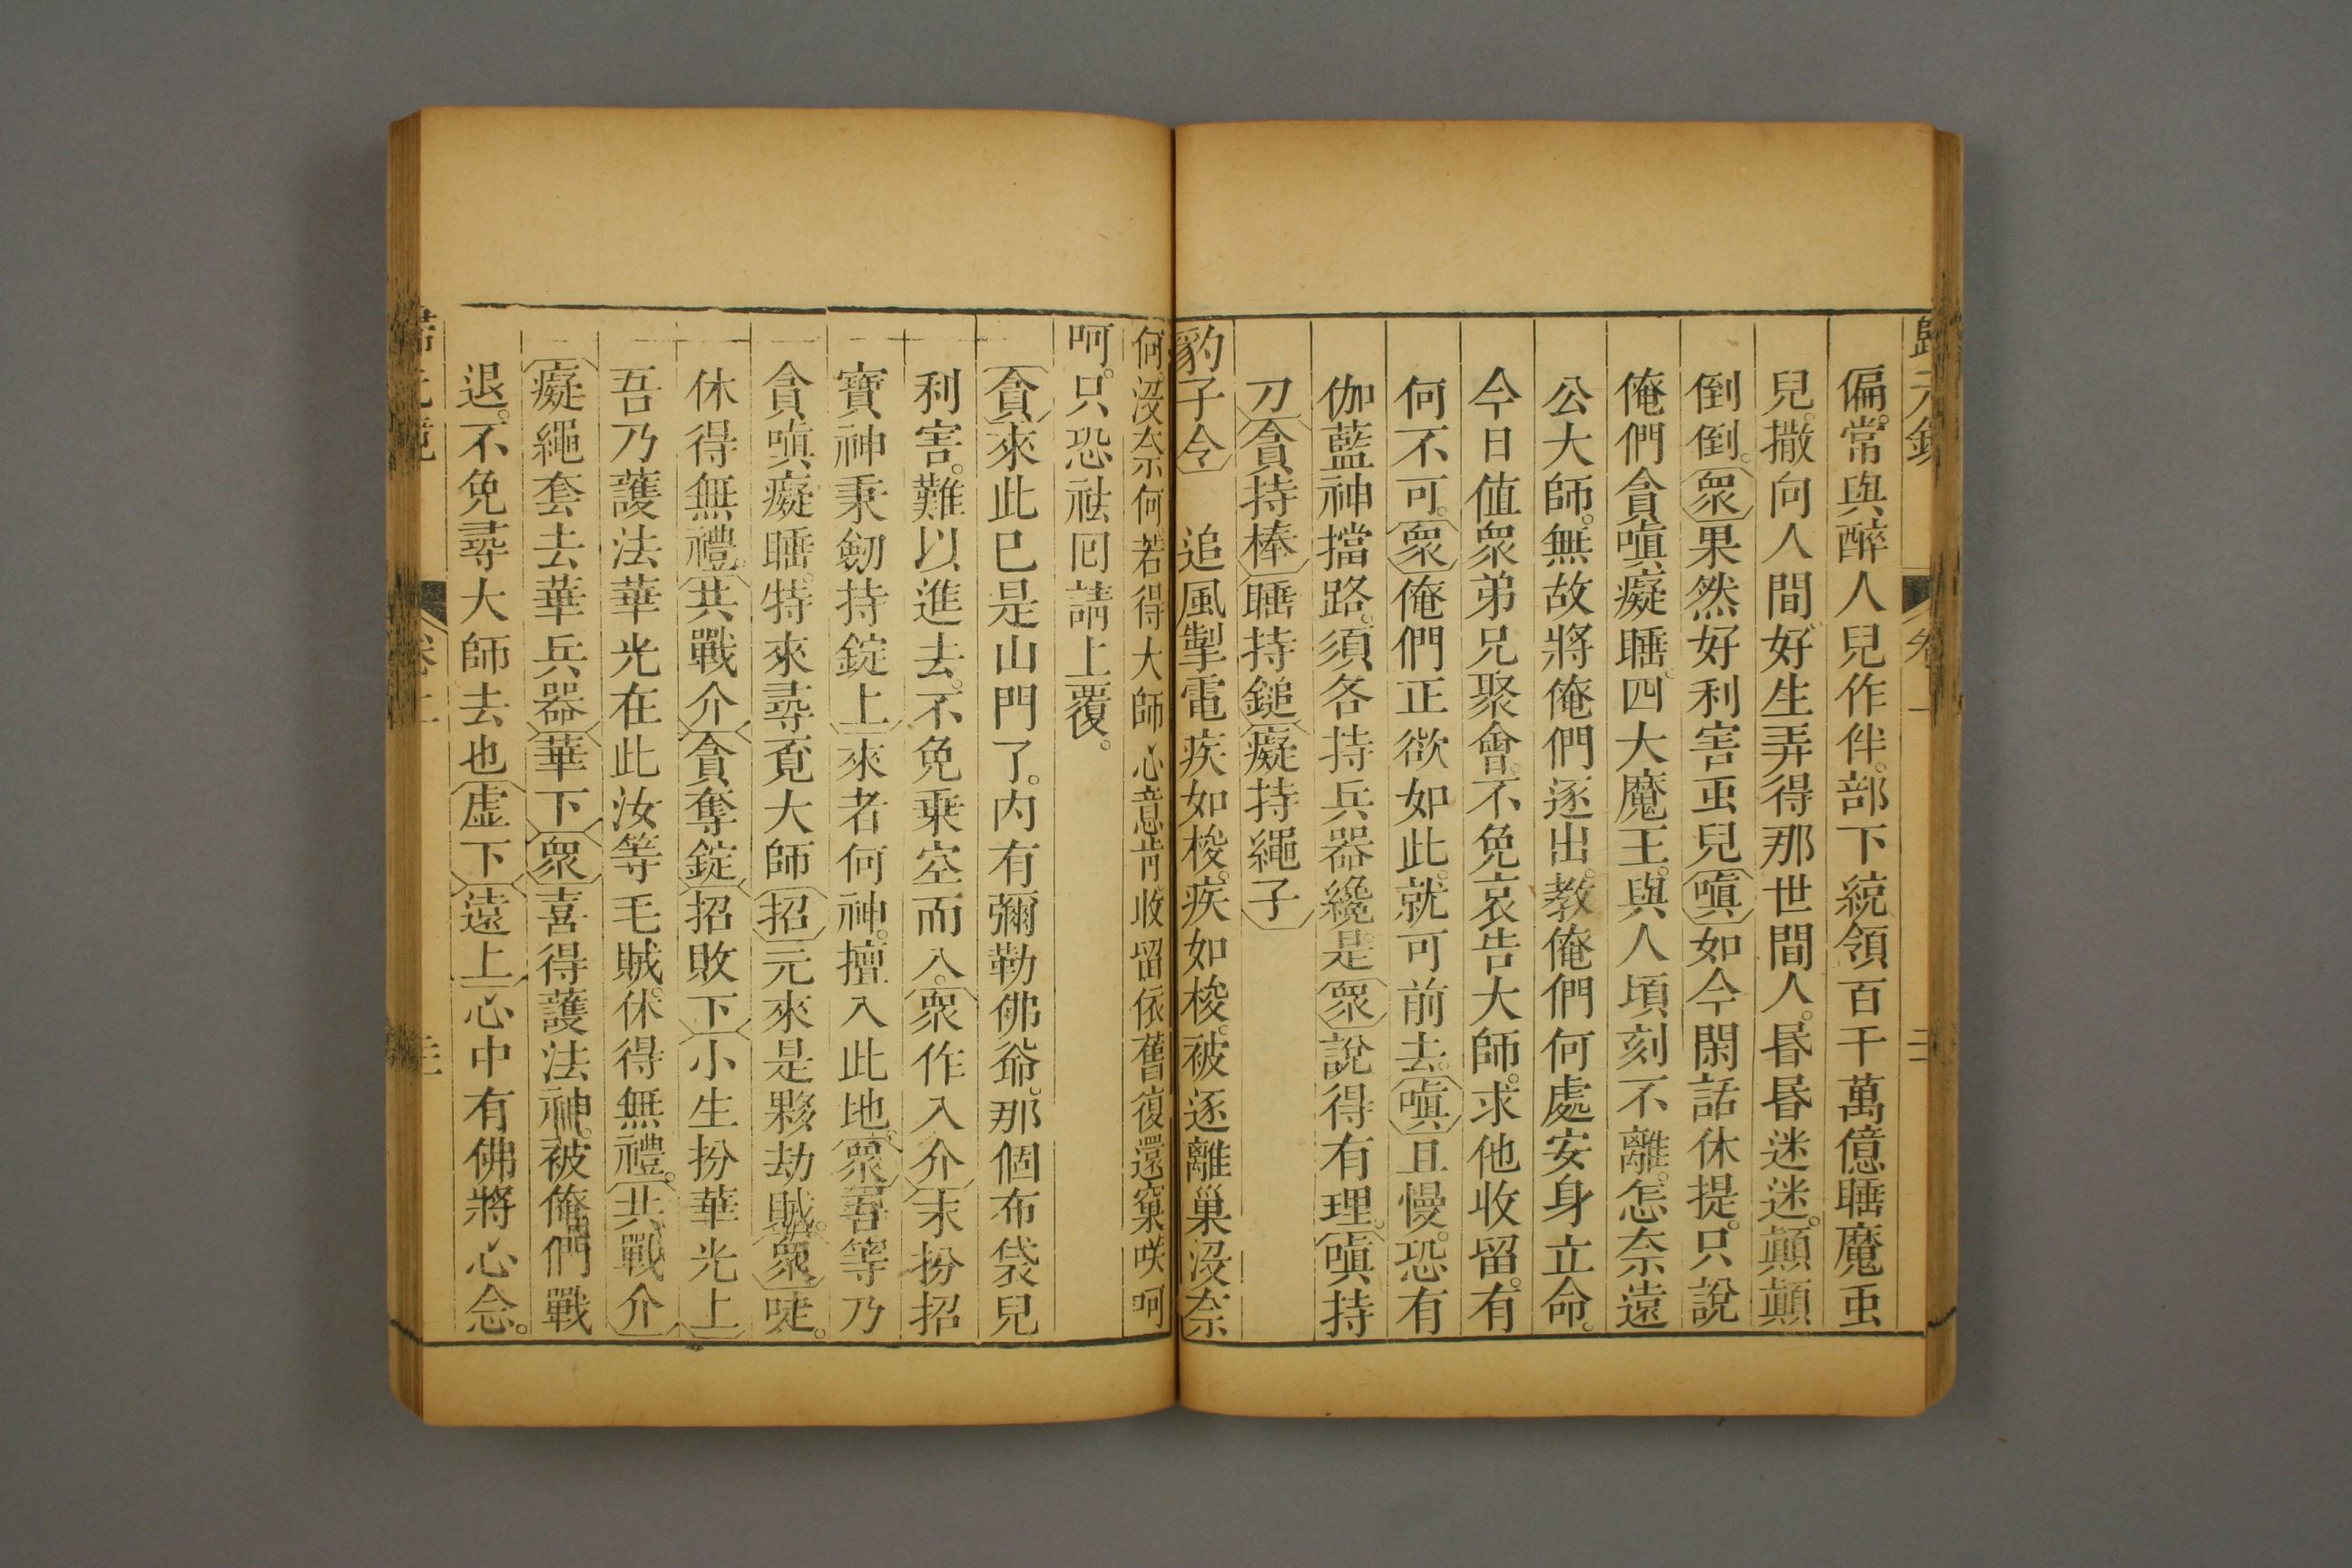 偏。常與醉人兒作伴。部下統領百千萬億睡魔䖝
兒。撒向人間。好生弄得那世間人。昏昏迷迷。顛顛
倒倒。衆果然好利害䖝兒嗔如今閑話休提。只說
俺們貪嗔癡睡。四大魔王。與人頃刻不離。怎奈遠
公大師。無故將俺們逐出。教俺們何處安身立命。
今日值衆弟兄聚會。不免哀告大師。求他收留。有
何不可。衆俺們正欲如此。就可前去。嗔且慢。恐有
伽藍神擋路。須各持兵器纔是。衆說得有理。嗔持
刀貪持棒睡持鎚癡持繩子
豹子令 追風掣電疾如梭。疾如梭。被逐離巢沒奈
何沒奈何若得大師心意肯收留依舊復還窠咲呵
呵。只恐祛囘請上覆。
貪來此已是山門了。内有彌勒佛爺。那個布袋兒
利害。難以進去。不免乘空而入。衆作入介末扮招
寶神秉劒持錠上來者何神。擅入此地。衆吾等乃
貪嗔癡睡。特來尋覔大師招元來是夥劫賊。衆唗。
休得無禮。共戰介貪奪錠招敗下小生扮華光上
吾乃護法華光在此汝等毛賊。休得無禮。共戰介
癡繩套去華兵器華下衆喜得護法神。被俺們戰
退。不免尋大師去也虛下遠上心中有佛將心念。
歸元鏡
卷上